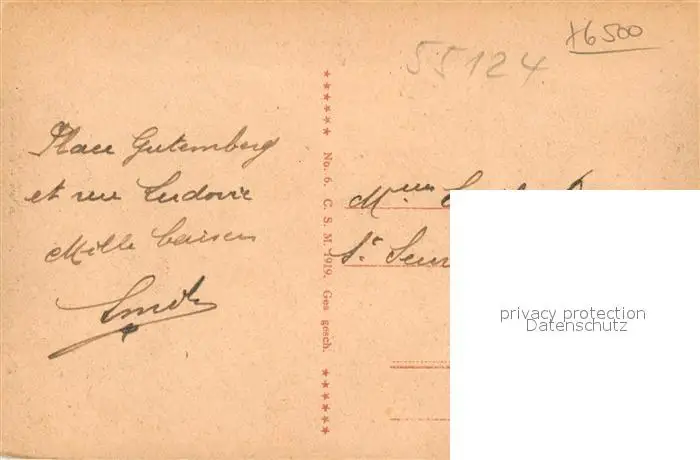 x6500
55124
Place Gutemberg
et rue Ludovic
Mille baisers
No. 6. C. S. M. 1919. Ges gesch.
St
privacy protection
Datenschutz